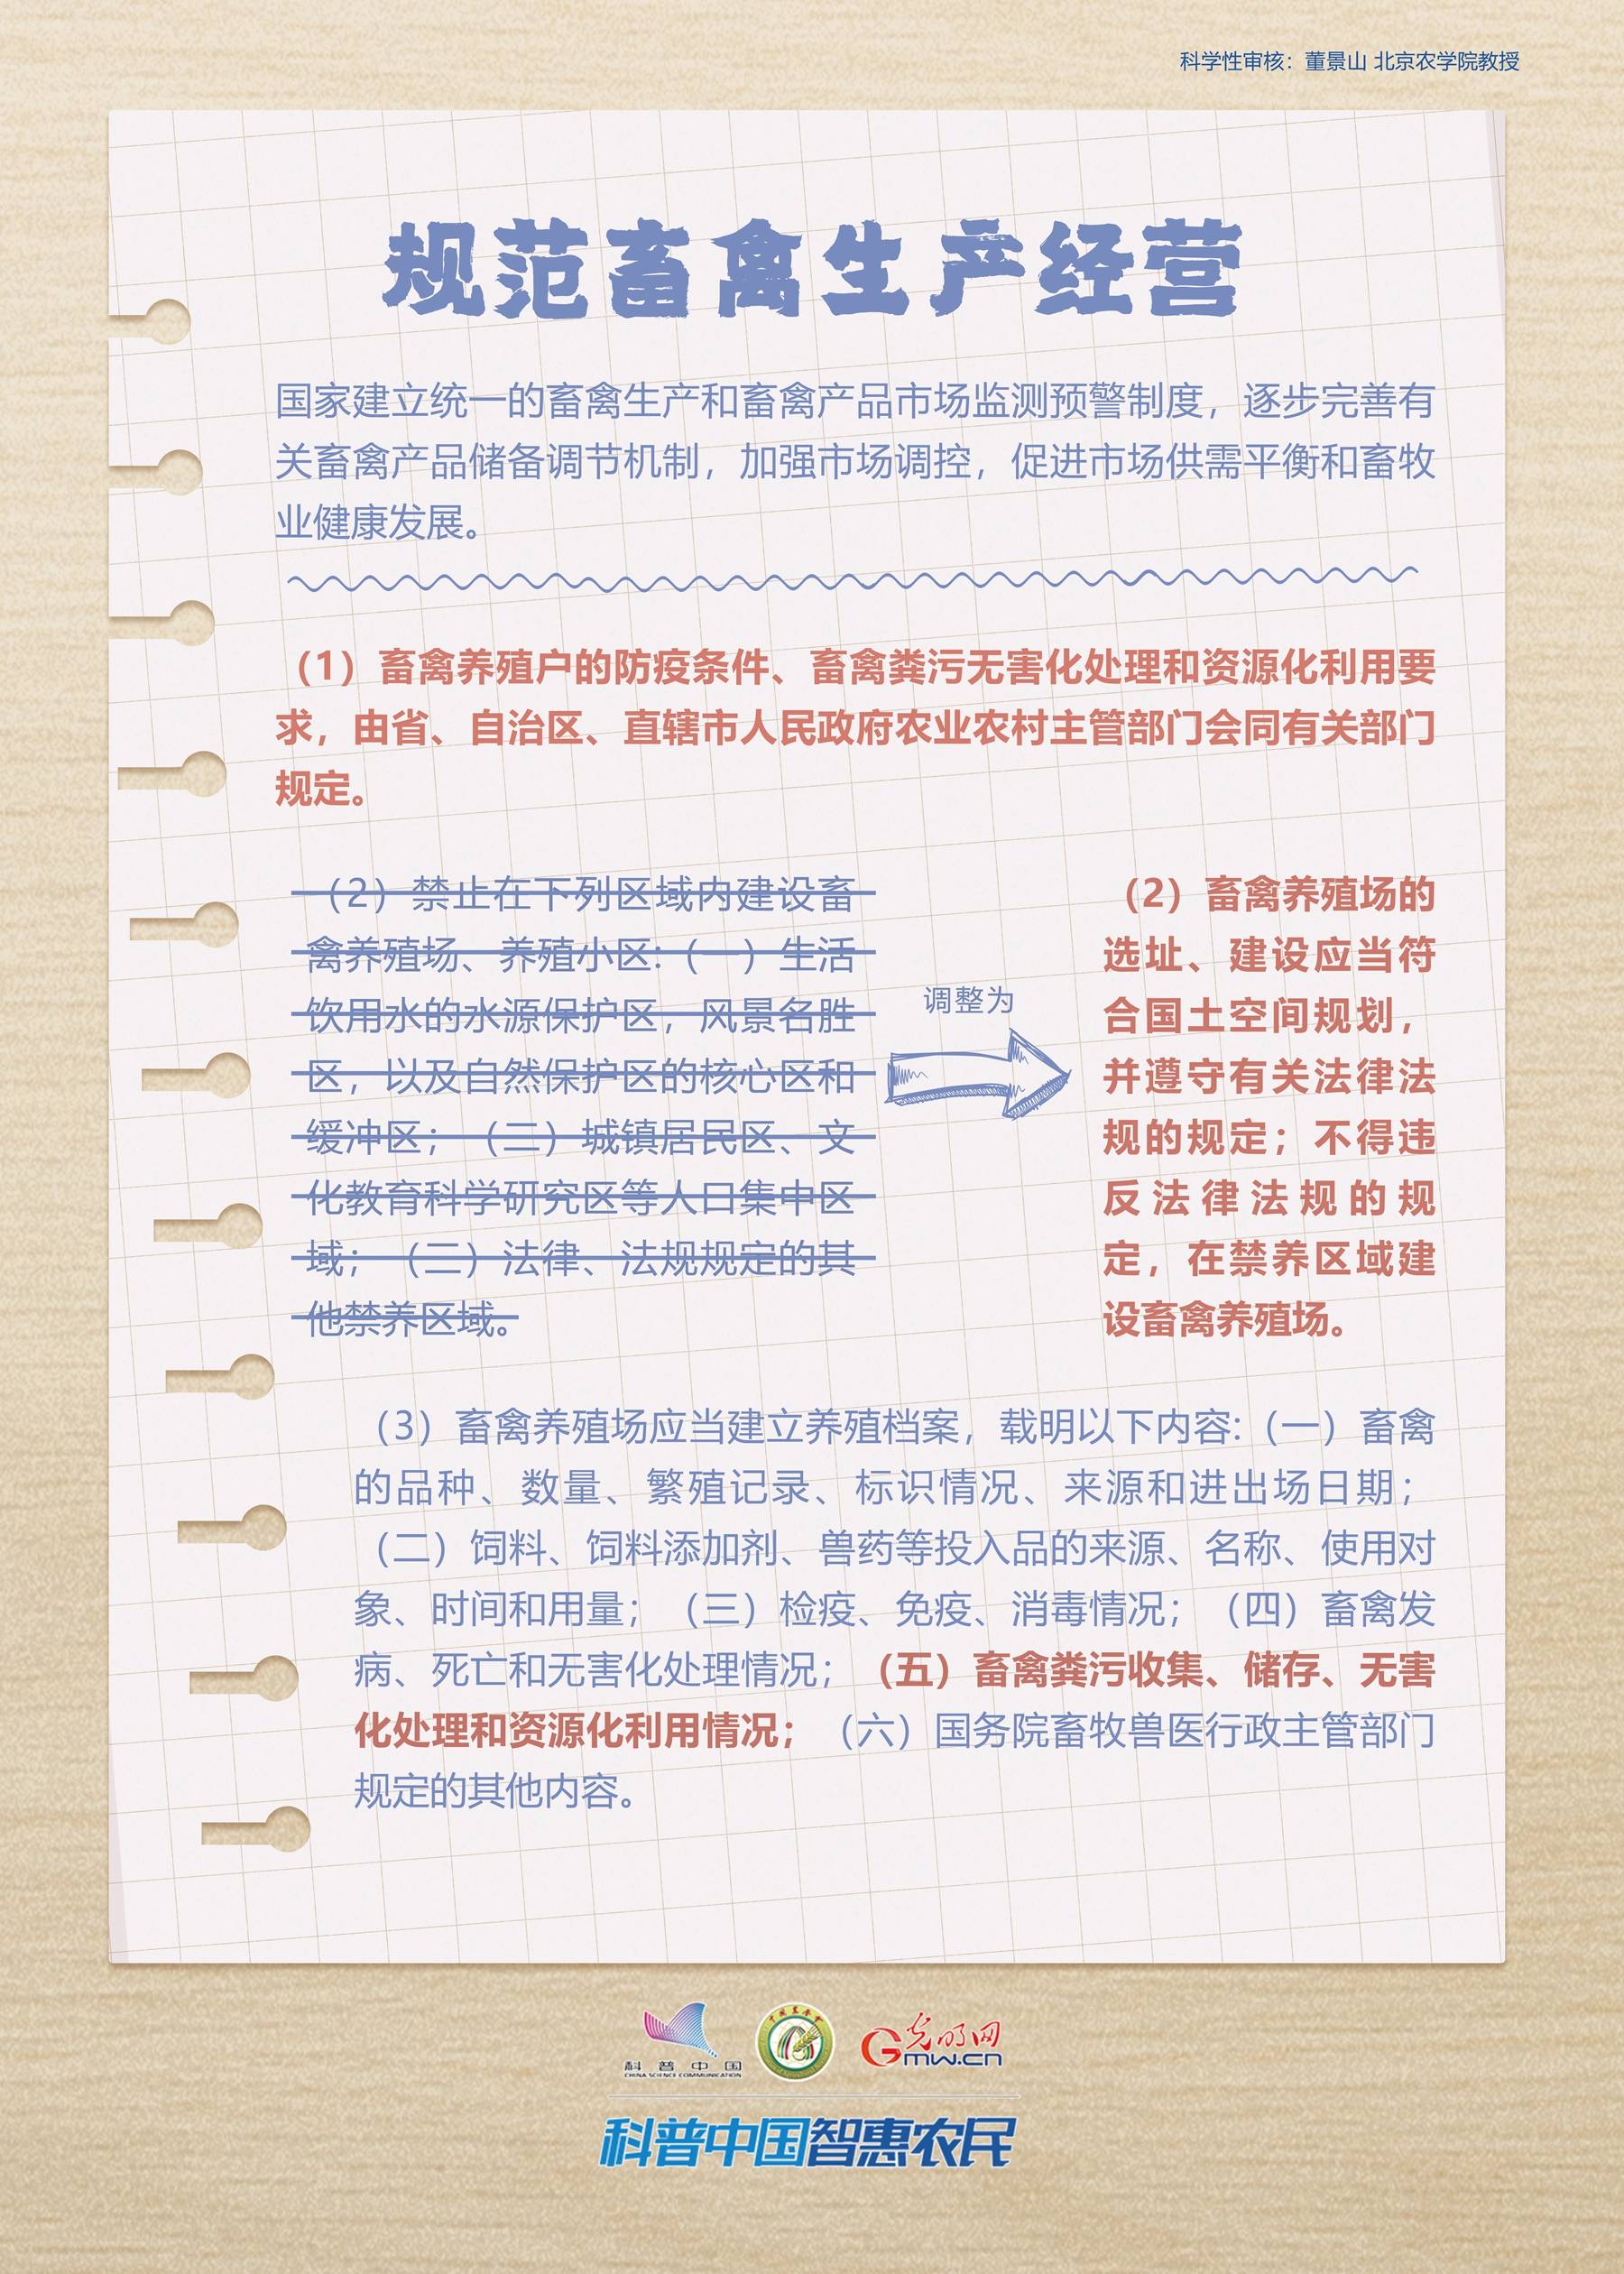 科学性审核：董景山 北京农学院教授
规范畜禽生产经营
国家建立统一的畜禽生产和畜禽产品市场监测预警制度，逐步完善有
关畜禽产品储备调节机制，加强市场调控，促进市场供需平衡和畜牧
业健康发展。
（1）畜禽养殖户的防疫条件、畜禽粪污无害化处理和资源化利用要
求，由省、自治区、直辖市人民政府农业农村主管部门会同有关部门
规定。
（2）禁止在下列区域内建设畜
禽养殖场、养殖小区:（一）生活
饮用水的水源保护区，风景名胜
区，以及自然保护区的核心区和
缓冲区；（二）城镇居民区、文
化教育科学研究区等人口集中区
域；（三）法律、法规规定的其
他禁养区域。
调整为
（2）畜禽养殖场的
选址、建设应当符
合国土空间规划，
并遵守有关法律法
规的规定；不得违
反法律法规的规
定，在禁养区域建
设畜禽养殖场。
（3）畜禽养殖场应当建立养殖档案，载明以下内容:（一）畜禽
的品种、数量、繁殖记录、标识情况、来源和进出场日期；
（二）饲料、饲料添加剂、兽药等投入品的来源、名称、使用对
象、时间和用量；（三）检疫、免疫、消毒情况；（四）畜禽发
病、死亡和无害化处理情况；（五）畜禽粪污收集、储存、无害
化处理和资源化利用情况；（六）国务院畜牧兽医行政主管部门
规定的其他内容。
科普中国
CHINA SCIENCE COMMUNICATION
光明网
GMW.CN
科普中国智惠农民